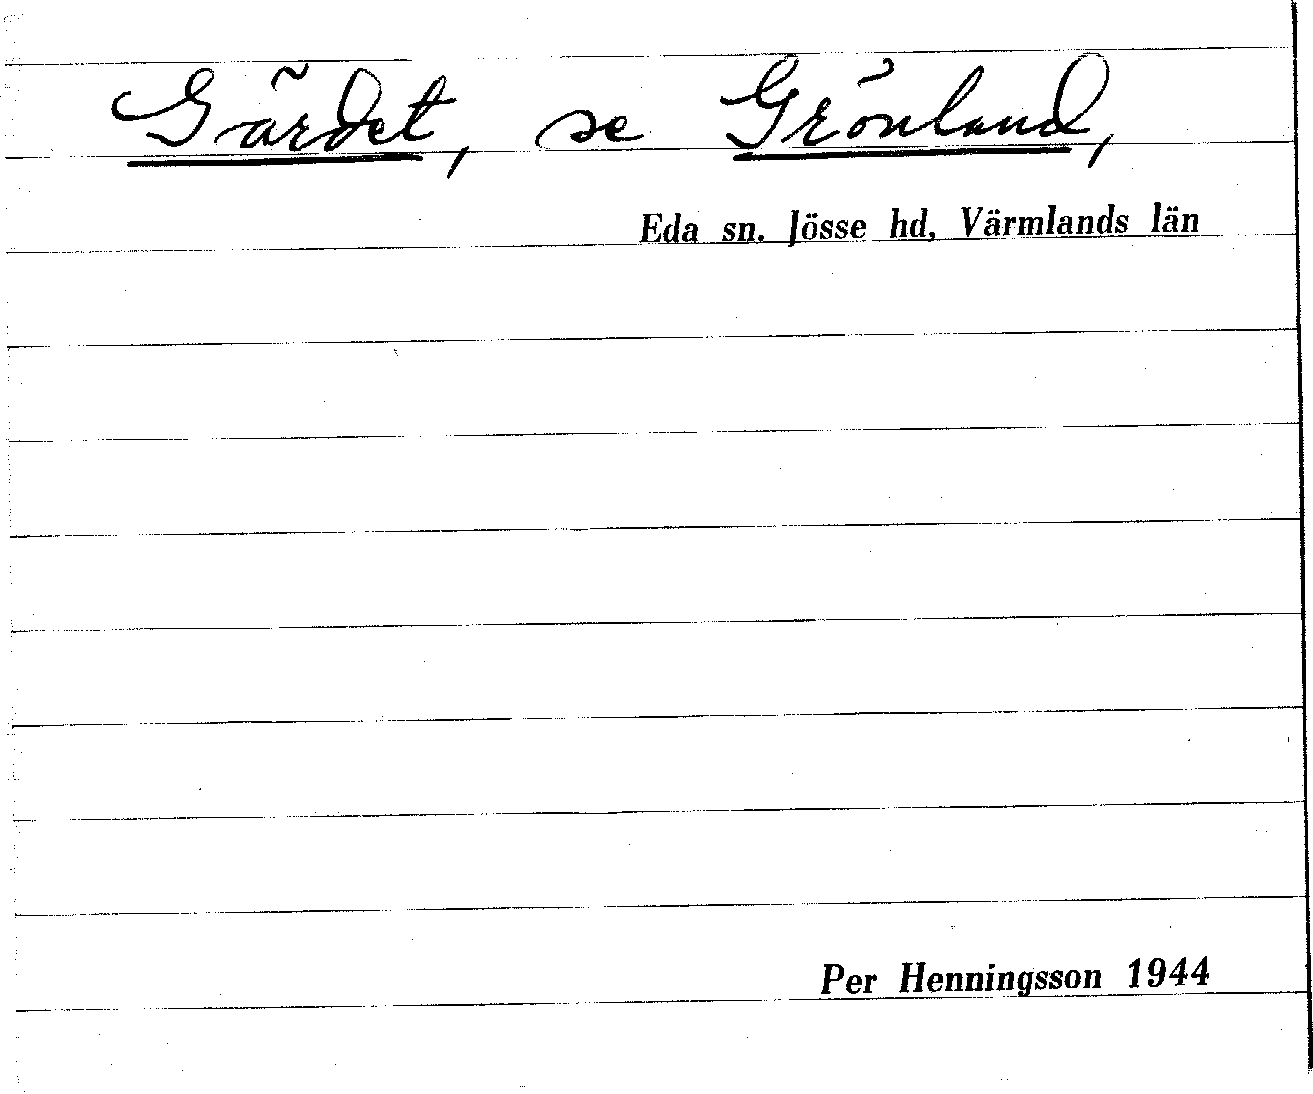 Gärdet, se Grönland,
Eda sn. Jösse hd, Värmlands län
Per Henningsson 1944